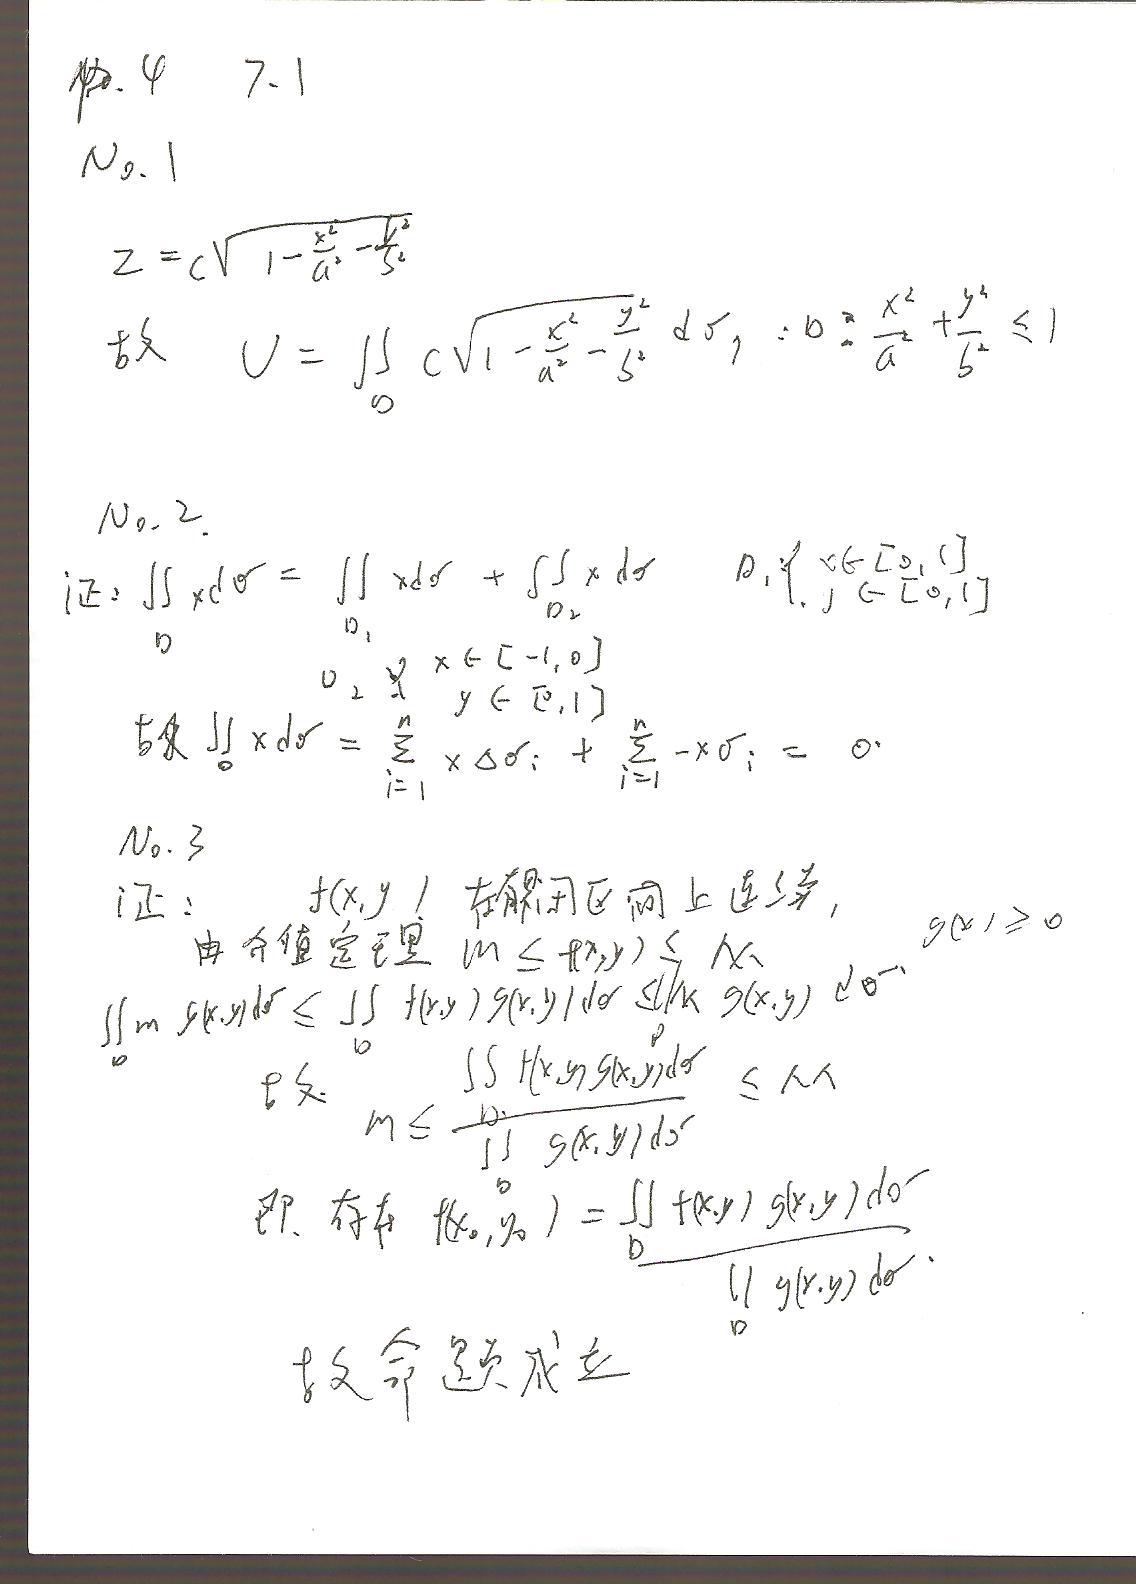 .4 7.1
No.1
z = c√(1 - x²/a² - y²/b²)
故 V = ∬_D c√(1 - x²/a² - y²/b²) dσ, : D : x²/a² + y²/b² ≤ 1
No.2.
证: ∬_D xdσ = ∬_D₁ xdσ + ∬_D₂ x dσ D₁ { x ∈ [0,1] y ∈ [0,1]
D₂ { x ∈ [-1,0] y ∈ [0,1]
故 ∬_D x dσ = Σ_{i=1}^n x Δσᵢ + Σ_{i=1}^n -xσᵢ = 0.
No.3
证: f(x,y) 在有界闭区间上连续,
由介值定理 m ≤ f(x,y) ≤ M g(x) ≥ 0
∬_D m g(x,y)dσ ≤ ∬_D f(x,y) g(x,y)dσ ≤ ∬_D M g(x,y) dσ.
故. m ≤ ∬_D f(x,y) g(x,y)dσ / ∬_D g(x,y)dσ ≤ M
即. 存在 f(x₀,y₀) = ∬_D f(x,y) g(x,y)dσ / ∬_D g(x,y)dσ.
故命题成立